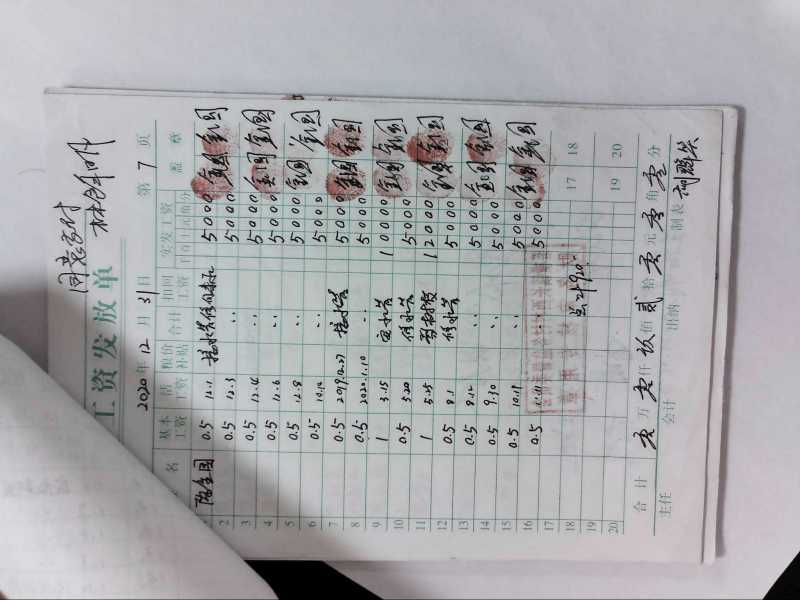 同意支付
工资发放单
2020年12月31日 第7页
名 基本工资 粮价补贴 合计 扣回工资 实发工资 盖章
百十元角分
陈金国 0.5 12.1 5000 金国
2 0.5 12.3 〃 5000 金国
3 0.5 12.4 〃 5000 金国
4 0.5 12.6 〃 5000 金国
5 0.5 12.8 〃 5000 金国
6 0.5 10.12 〃 5000 金国
7 0.5 2019.12.27 接水管 5000 金国
8 0.5 2020.1.10 〃 5000 金国
9 1 3.15 水管 10000 金国
10 0.5 5.20 修水管 5000 金国
11 1 5.25 12000 金国
12 0.5 8.1 修水管 5000 金国
13 0.5 8.12 〃 5000 金国
14 0.5 9.30 〃 5000 金国
15 0.5 10.19 〃 5000 金国
16 0.5 〃 5000 金国
17 17
18 总计920. 18
19 19
20 20
合计 零万零仟玖佰贰拾零元零角零分
主任 会计 出纳 制表